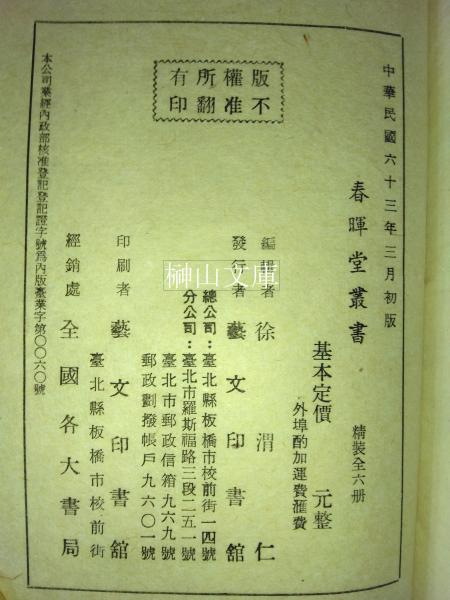 中華民國六十三年三月初版
春暉堂叢書
精裝全六册
基本定價 元整
外埠酌加運費滙費
編輯者 徐渭仁
發行者 藝文印書館
總公司：臺北縣板橋市校前街一四號
分公司：臺北市羅斯福路三段二五一號
臺北市郵政信箱九六九號
郵政劃撥帳戶九六〇一號
印刷者 藝文印書館
臺北縣板橋市校前街
經銷處 全國各大書局
本公司業經內政部核准登記登記證字號爲內版臺業字第〇〇六〇號
版權所有
不准翻印
榊山文庫